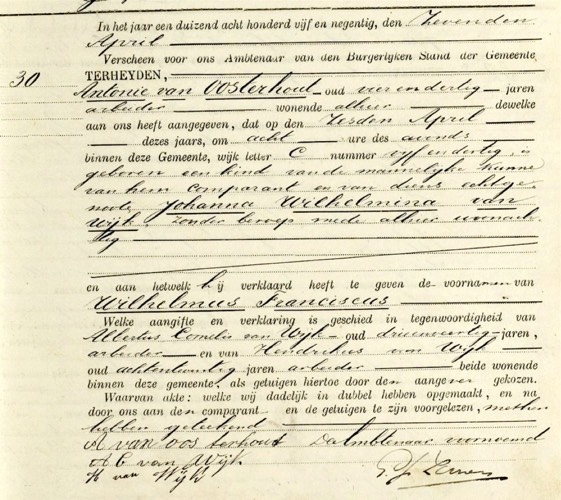 In het jaar een duizend acht honderd vijf en negentig, den Zevenden
April
Verscheen voor ons Ambtenaar van den Burgerlijken Stand der Gemeente
30
TERHEYDEN,
Antonie van Oosterhout oud vier en dertig jaren
arbeider wonende alhier dewelke
aan ons heeft aangegeven, dat op den Zesden April
dezes jaars, om acht ure des avonds
binnen deze Gemeente, wijk letter C nummer vijf en dertig, is
geboren een kind van de mannelijke kunne
van hem comparant en van diens echtge-
noote Johanna Wilhelmina van
Wijk, zonder beroep mede alhier woonach-
tig
en aan hetwelk hij verklaard heeft te geven de voornamen van
Wilhelmus Franciscus
Welke aangifte en verklaring is geschied in tegenwoordigheid van
Albertus Cornelis van Wijk oud drieenveertig jaren,
arbeider en van Hendrikus van Wijk
oud achtentwintig jaren arbeider beide wonende
binnen deze gemeente, als getuigen hiertoe door den aangever gekozen.
Waarvan akte: welke wij dadelijk in dubbel hebben opgemaakt, en na
door ons aan den comparant en de getuigen te zijn voorgelezen, met hen
hebben geteekend
A van oosterhout De Ambtenaar voornoemd
A C van Wijk
H van Wijk